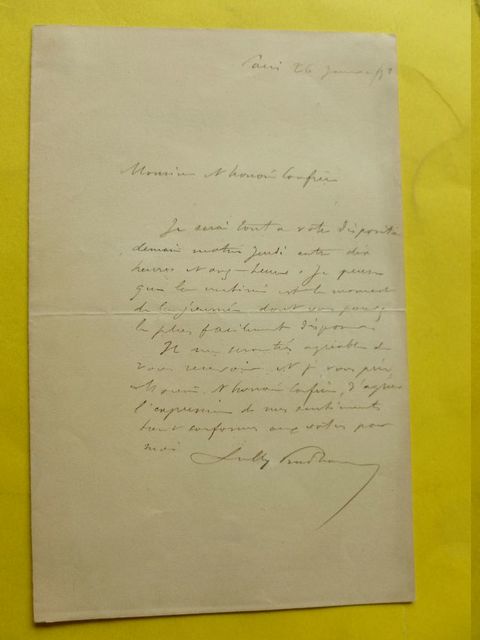 Paris 26 janvier
Monsieur et honoré Confrère
Je serai tout à votre disposition
demain matin Jeudi entre dix
heures et onze heures. Je pense
que la matinée est le moment
de la journée dont vous pouvez
le plus facilement disposer.
Il me sera très agréable de
vous recevoir et je vous prie,
et honoré Confrère, d'agréer
l'expression de mes sentiments
tout conformes aux votres pour
moi
Sully Prudhomme